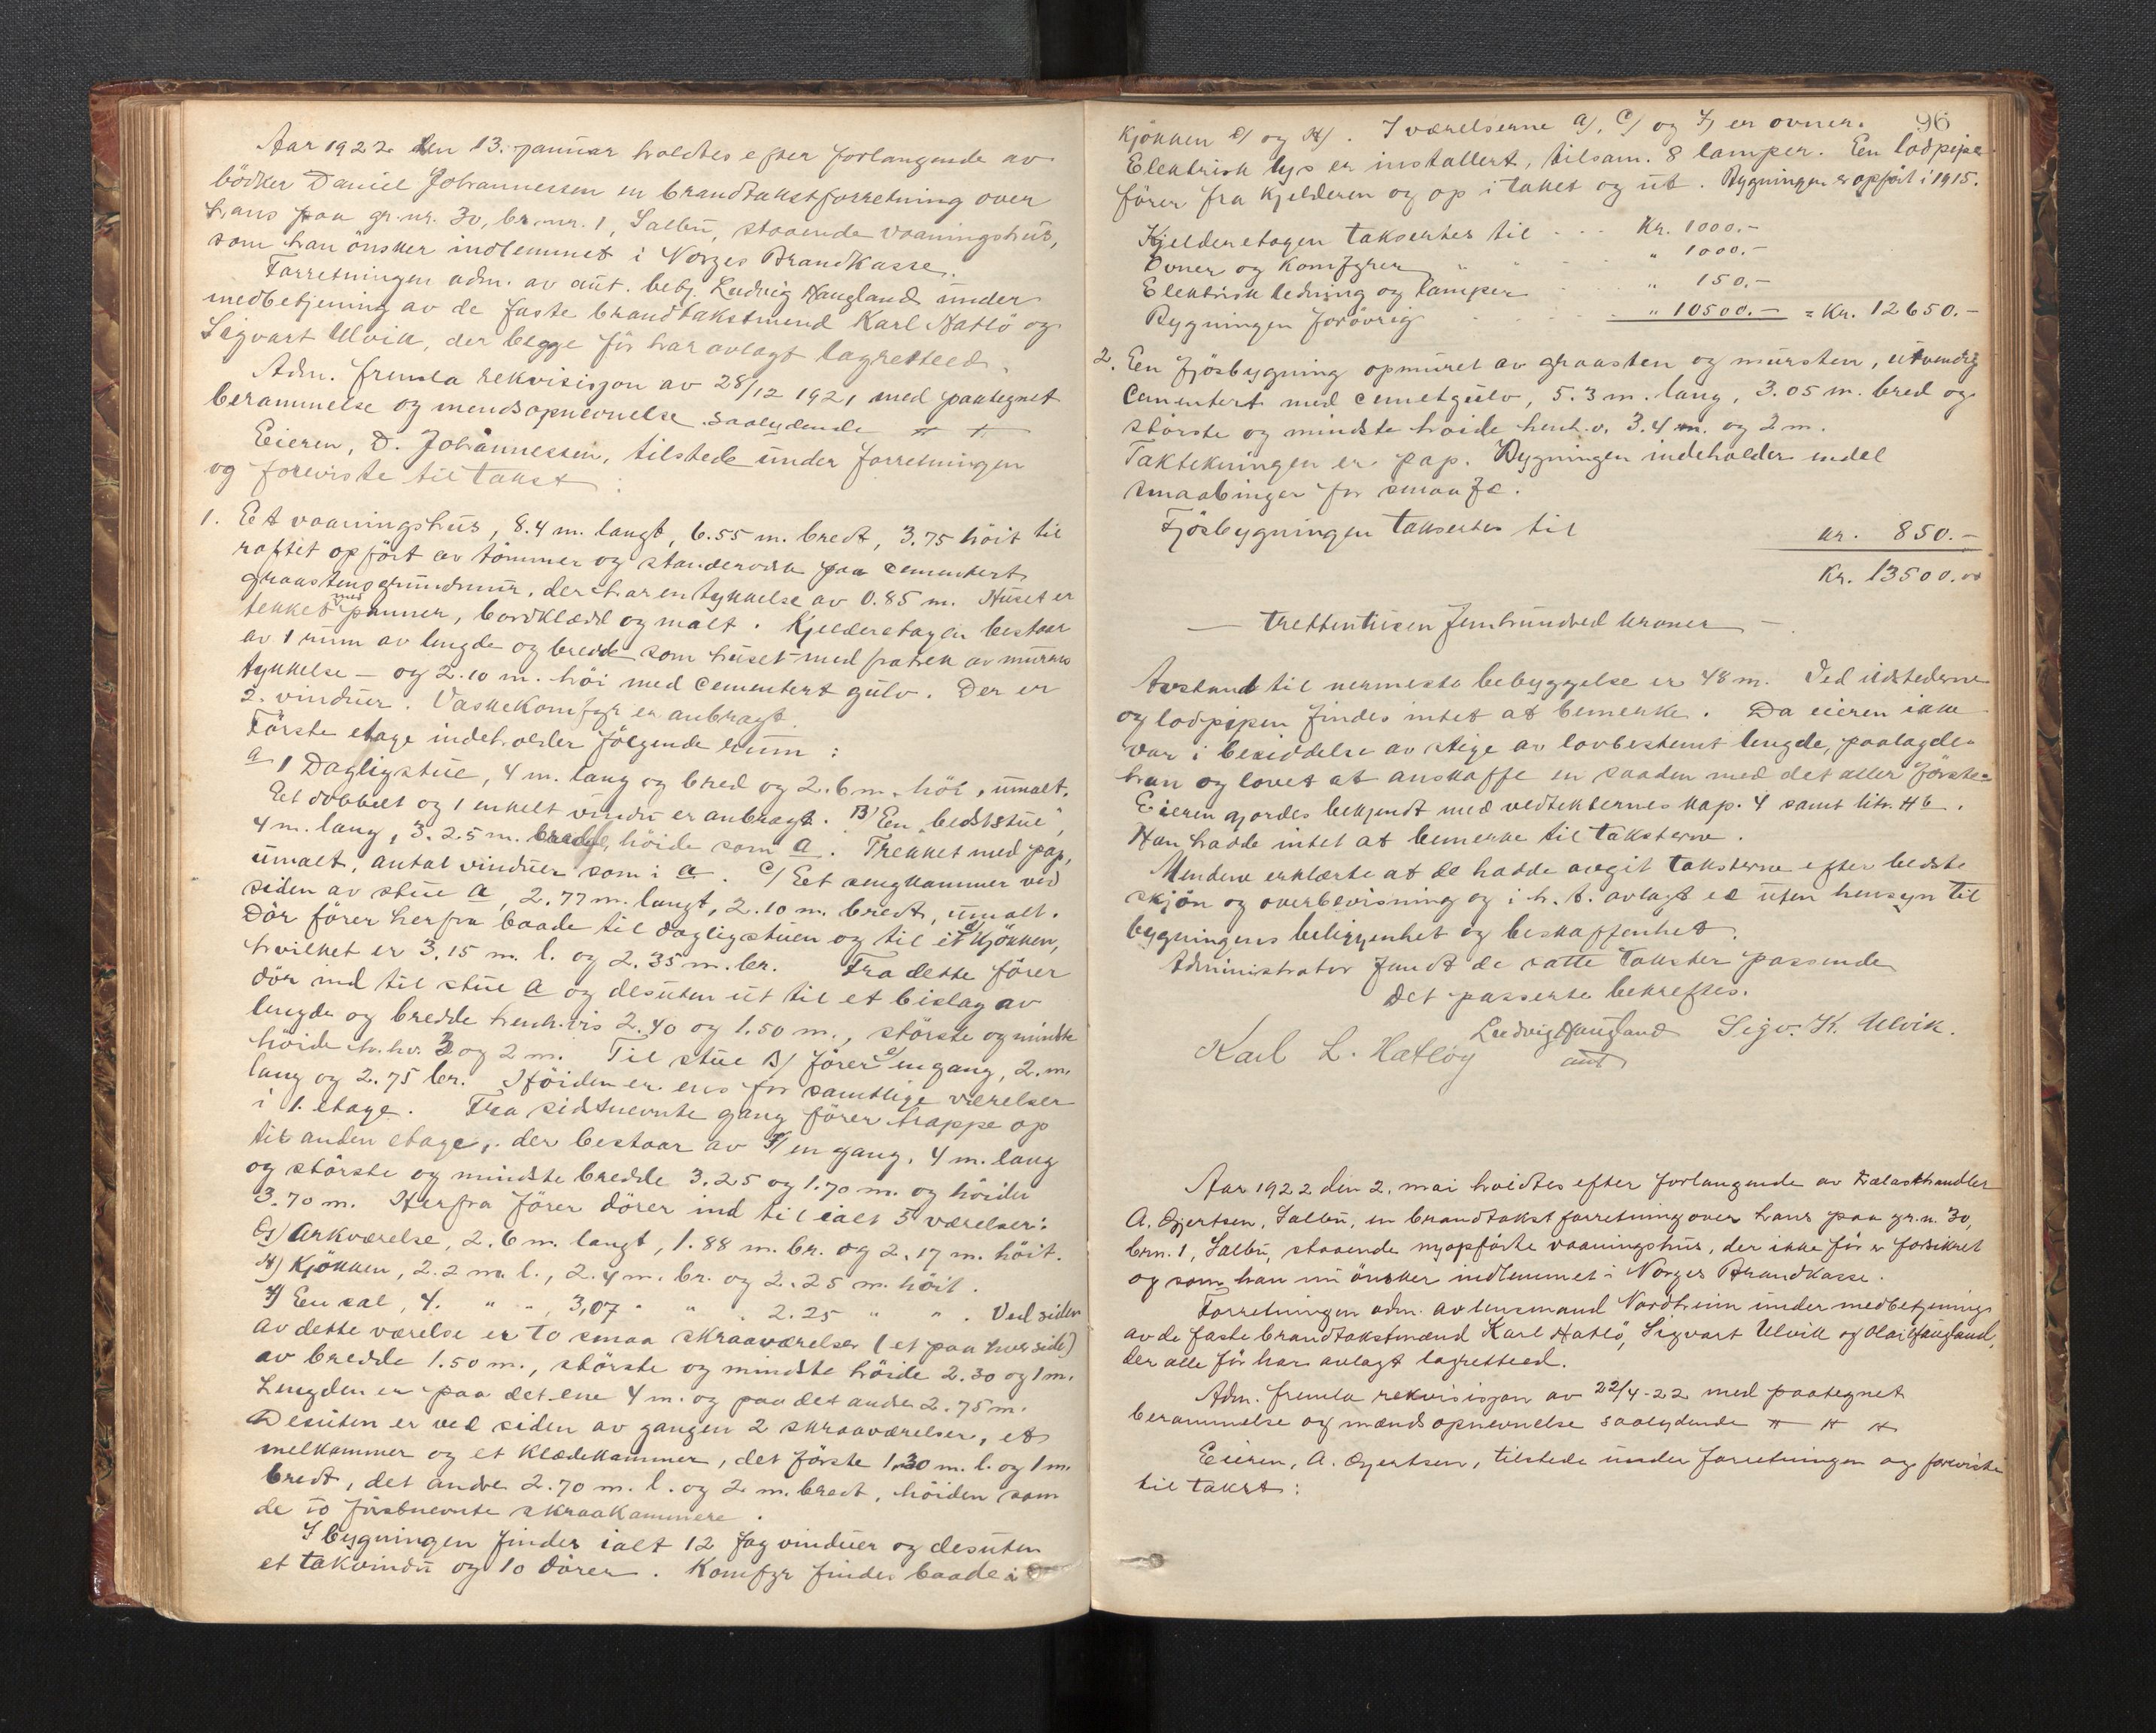 Aar 1922 den 13. januar holdtes efter forlangende av
bödker Daniel Johannessen en brandtakstforretning over
hans paa gr.nr. 30, br.nr. 1, Salbu, staaende vaaningshus,
som han önsker indlemmet i Norges Brandkasse.
Forretningen adm. av aut. betj. Ludvig Haugland under
medbetjening av de faste brandtakstmend Karl Hatlö og
Sigvart Ulvik, der begge för har avlagt lagretteed.
Adm. fremla rekvisisjon av 28/12 1921 med paategnet
berammelse og mendsopnevnelse saalydende
Eieren, D. Johannessen, tilstede under forretningen
og foreviste til takst:
1. Et vaaningshus, 8.4 m. langt, 6.55 m. bredt, 3.75 höit til
raftet opfört av tömmer og standerverk paa cementert
graastensgrundmur, der har en tykkelse av 0.85 m. Huset er
tekket med panner, bordklædd og malt. Kjelderetagen bestaar
av 1 rum av lengde og bredde som huset med fratrek av murens
tykkelse – og 2.10 m. höi med cementert gulv. Der er
2 vinduer. Vaskekomfyr er anbragt.
Förste etage indeholder fölgende rum:
a/ 1 Dagligstue, 4 m. lang og bred og 2.6 m. höi, umalt.
Et dobbelt og 1 enkelt vindu er anbragt. B) En "bedststue",
4 m. lang, 3.25 m. bred, höide som a. Trekket med pap,
umalt, antal vinduer som i a. C/ Et sengkammer ved
siden av stue a, 2.77 m. langt, 2.10 m. bredt, umalt.
Dör förer herfra baade til dagligstuen og til et d) Kjökken,
hvilket er 3.15 m. l. og 2.35 m. br. Fra dette förer
dör ind til stue a og desuten ut til et bislag av
lengde og bredde henh.vis 2.40 og 1.50 m., störste og mindste
höide h.hv. 3 og 2 m. Til stue B) förer e) en gang, 2. m.
lang og 2.75 br. Höiden er ens for samtlige værelser
i 1. etage. Fra sidstnevnte gang förer trappe op
til anden etage, der bestaar av F) en gang, 4 m. lang
og störste og mindste bredde 3.25 og 1.70 m. og höiden
3.70 m. Herfra förer dörer ind til ialt 5 værelser:
G) Arkværelse, 2.6 m. langt, 1.88 m. br. og 2.17 m. höit.
H) Kjökken, 2.2 m. l., 2.4 m. br. og 2.25 m. höit.
En sal, 4. " " , 3,07 " " . 2.25 " " . Ved siden
av dette værelse er to smaa skraaværelser (et paa hver side)
av bredde 1.50 m., störste og mindste höide 2.30 og 1 m.
Lengden er paa det ene 4 m. og paa det andre 2.75 m.
Desuten er ved siden av gangen 2 skraaværelser, et
melkammer og et klædekammer, det förste 1.30 m. l. og 1 m.
bredt, det andre 2.70 m. l. og 2 m. bredt, höiden som
de to förstnevnte skraakammere.
I bygningen findes ialt 12 fag vinduer og desuten
et takvindu og 10 dörer. Komfyr findes baade i
96
Kjökken d/ og H/. I værelserne a/, C/ og F/ er ovner.
Elektrisk lys er installert, tilsam. 8 lamper. En lodpipe
förer fra Kjelderen og op i taket og ut. Bygningen er opfört i 1915.
Kjelderetagen taksertes til . . . Kr. 1000.-
Ovner og Komfyrer " " 1000.-
Elektrisk ledning og lamper " 150.-
Bygningen forövrig " 10500.- = Kr. 12650.-
2. En fjösbygning opmuret av graasten og mursten, utvendig
cementert med cemetgulv, 5.3 m. lang, 3.05 m. bred og
störste og mindste höide henh.v. 3.4 m. og 2 m.
Taktekningen er pap. Bygningen indeholder endel
smaabinger for smaafe.
Fjösbygningen taksertes til kr. 850.-
Kr. 13500.00
— trettentusen femhundred kroner —
Avstand til nermeste bebyggelse er 48 m. Ved ildstederne
og lodpipen findes intet at bemerke. Da eieren ikke
var i besiddelse av stige av lovbestemt lengde, paalagdes
han og lovet at anskaffe en saadan med det aller förste.
Eieren gjordes bekjendt med vedtekternes kap. 4 samt litr. H b.
Han hadde intet at bemerke til taksterne.
Mendene erklærte at de hadde avgit taksterne efter bedste
skjön og overbevisning og i h. t. avlagt ed uten hensyn til
bygningens beliggenhet og beskaffenhet.
Administrator fandt de satte takster passende
Det passerte bekreftes.
Ludvig Haugland Sigv. K. Ulvik.
Karl L. Hatlöy aut
Aar 1922 den 2. mai holdtes efter forlangende av trælasthandler
A. Gjertsen, Salbu, en brandtakstforretning over hans paa gr.n. 30,
brn. 1, Salbu, staaende nyopförte vaaningshus, der ikke för er forsikret
og som han nu önsker indlemmet i Norges Brandkasse.
Forretningen adm. av lensmand Nordheim under medbetjening
av de faste brandtakstmænd Karl Hatlö, Sigvart Ulvik og Olai Haugland,
der alle för har avlagt lagretteed.
Adm. fremla rekvisisjon av 22/4-22 med paategnet
berammelse og mændsopnevnelse saalydende
Eieren, A. Gjertsen, tilstede under forretningen og foreviste
til takst: